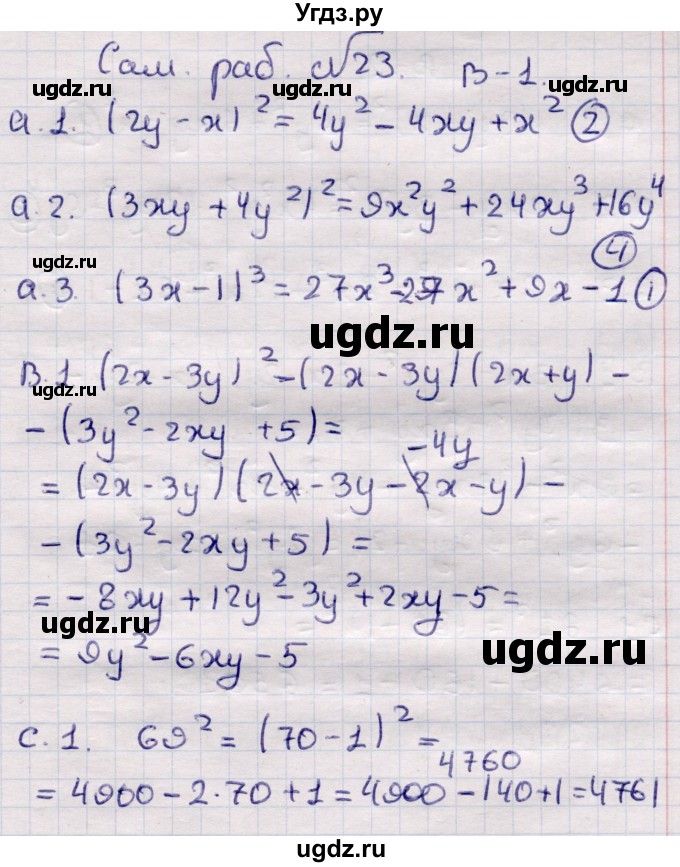 Угдз.ру
Сам. раб. №23. В-1.
ugdz.ru ugdz.ru ugdz.ru
a.1. (2y - x)² = 4y² - 4xy + x² (2)
a.2. (3xy + 4y²)² = 9x²y² + 24xy³ + 16y⁴
(4)
ugdz.ru
a.3. (3x - 1)³ = 27x³ - 27x² + 9x - 1 (1)
ugdz.ru
B.1 (2x - 3y)² - (2x - 3y)(2x + y) -
- (3y² - 2xy + 5) =
-4y
= (2x - 3y)(2x - 3y - 2x - y) -
- (3y² - 2xy + 5) =
= - 8xy + 12y² - 3y² + 2xy - 5 =
ugdz.ru ugdz.ru
= 9y² - 6xy - 5
C.1. 69² = (70 - 1)² =
4760
= 4900 - 2·70 + 1 = 4900 - 140 + 1 = 4761
ugdz.ru ugdz.ru